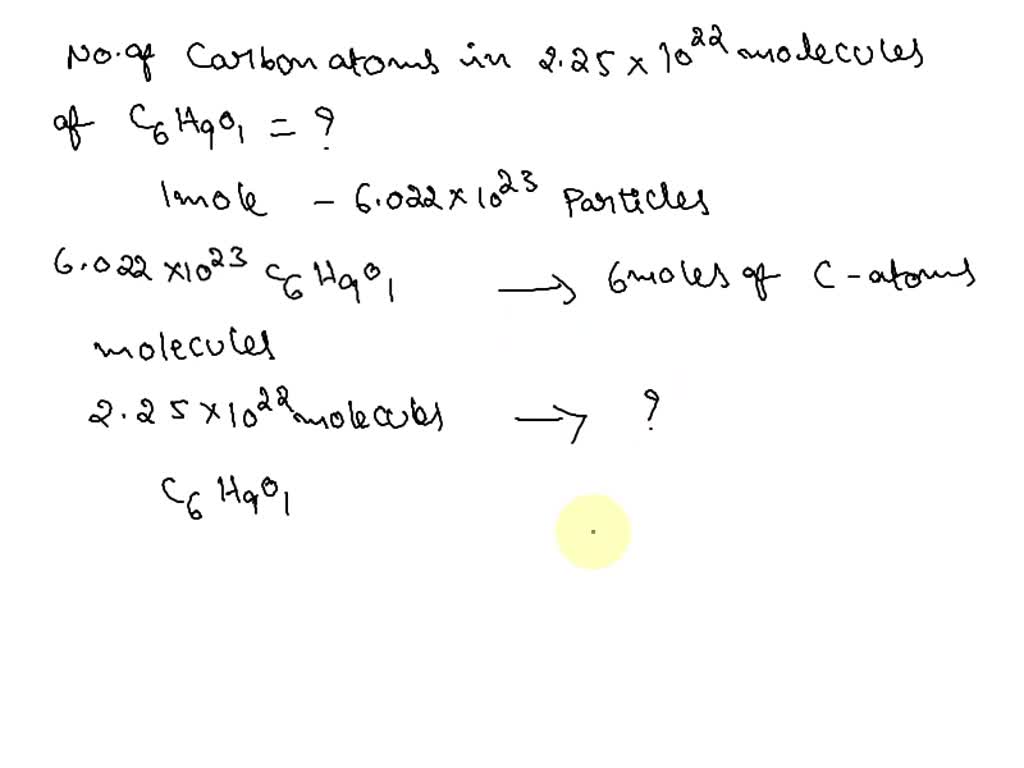 No. of Carbon atoms in 2.25 × 10²² molecules
of C₆H₉O₁ = ?
1mole – 6.022 × 10²³ Particles
6.022 × 10²³ C₆H₉O₁ → 6moles of C-atoms
molecules
2.25 × 10²² molecules → ?
C₆H₉O₁